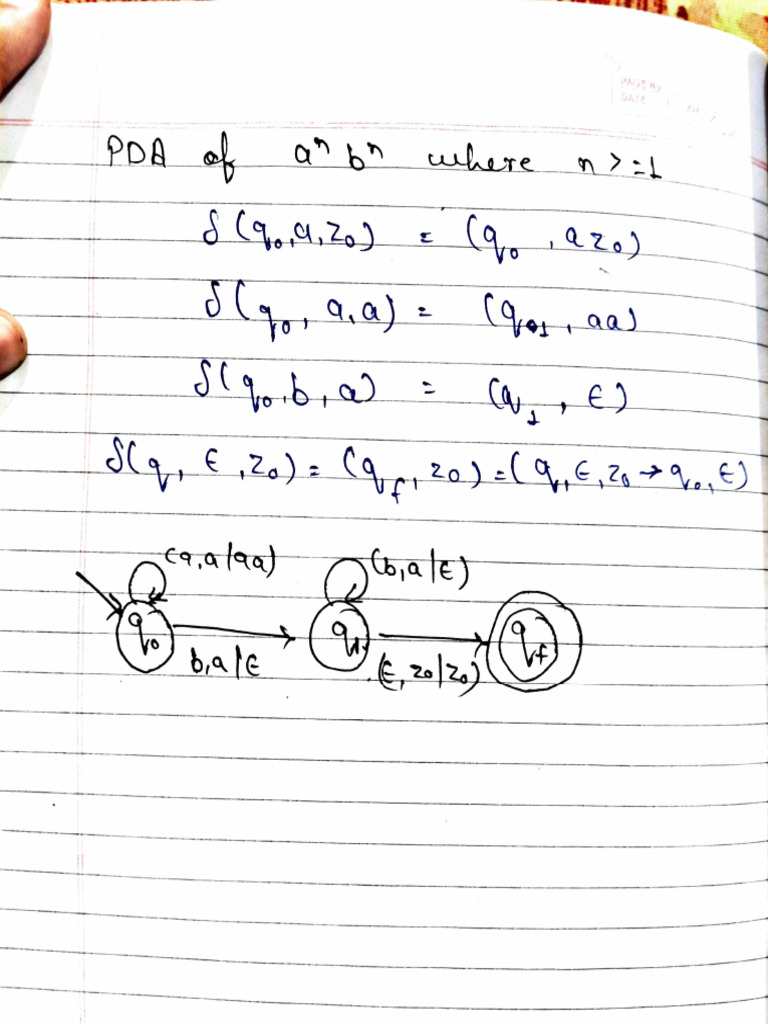 PAGE NO
DATE
PDA of aⁿ bⁿ where n >= 1
δ(q₀, a, z₀) = (q₀, a z₀)
δ(q₀, a, a) = (q₁, aa)
δ(q₀, b, a) = (q₁, ε)
δ(q, ε, z₀) = (q_f, z₀) = (q, ε, z₀ → q₀, ε)
(a, a | aa) (b, a | ε)
q₀ q₁ q_f
b, a | ε (ε, z₀ | z₀)